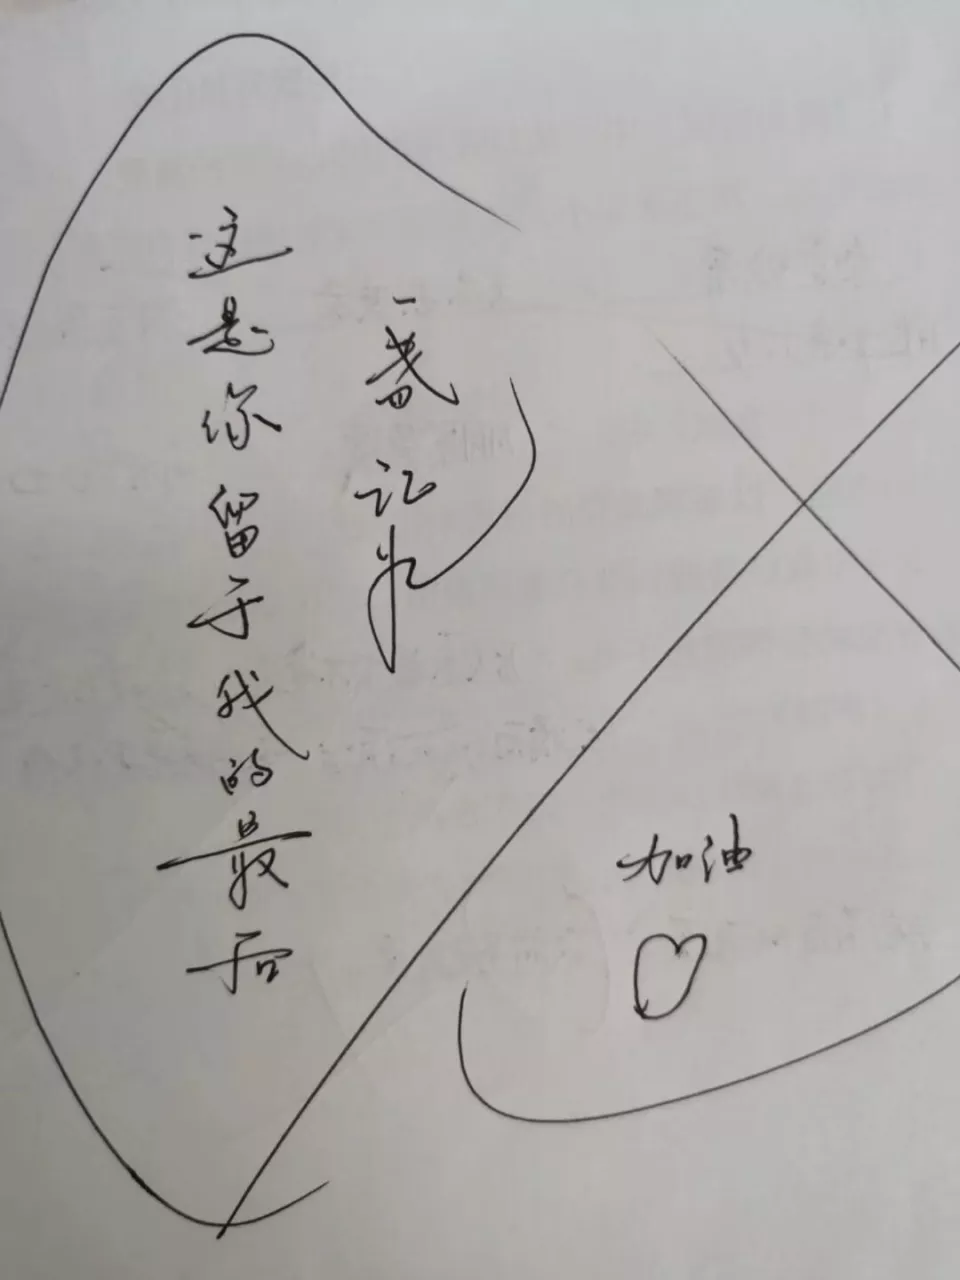 这是你留于我的最后
一 记忆
加油